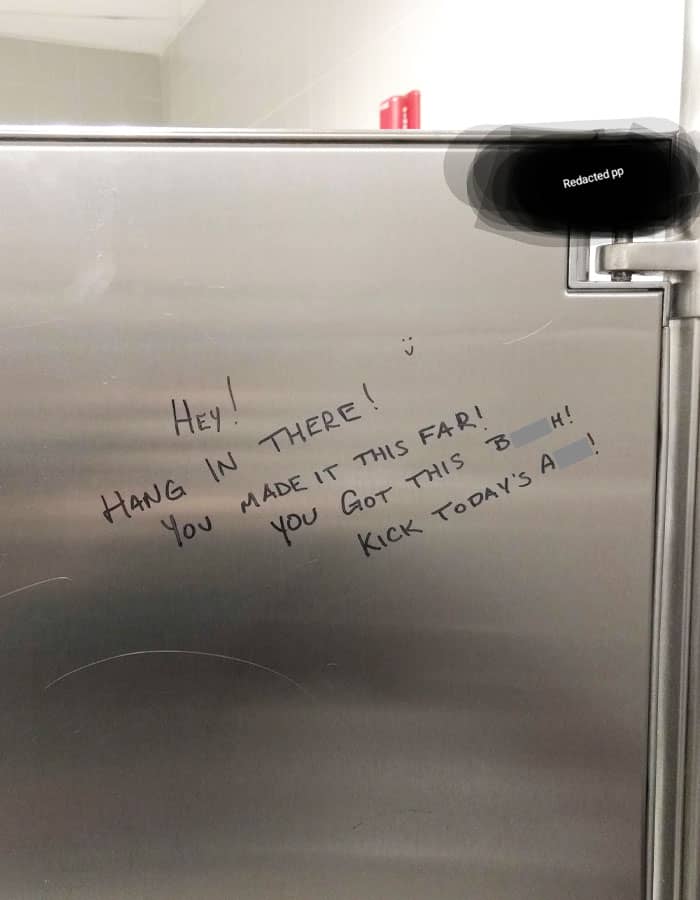 Redacted pp
HEY!
HANG IN THERE!
YOU MADE IT THIS FAR!
YOU GOT THIS B H!
KICK TODAY'S A !